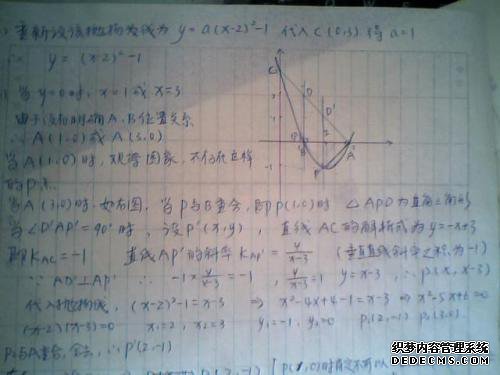 重新设该抛物线为 y=a(x-2)²-1 代入C(0,3) 得 a=1
∴ y=(x-2)²-1
当y=0时, x=1或x=3
由于没有明确A、B位置关系
∴ A(1,0)或A(3,0)
当A(1,0)时, 观察图象, 不存在这样
的P点.
当A(3,0)时, 如右图, 当P与B重合, 即P(1,0)时 △APD为直角三角形
当∠D'AP'=90°时, 设P'(x,y), 直线AC的解析式为y=-x+3
即K_AC=-1 直线AP'的斜率K_AP'=y/(x-3) (垂直直线斜率之积为-1)
∵ AD'⊥AP' ∴ -1×y/(x-3)=-1, y/(x-3)=1 y=x-3, ∴P'(x, x-3)
代入抛物线, (x-2)²-1=x-3 ⇒ x²-4x+4-1=x-3 ⇒ x²-5x+6=0
(x-2)(x-3)=0 x₁=2, x₂=3 y₁=-1, y₂=0 P₁(2,-1) P₂(3,0)
P₂与A重合, 舍去, ∴P'(2,-1)
C
D
D'
P
B
A
P'
本图来自
梦想网络
www.dreams123.net